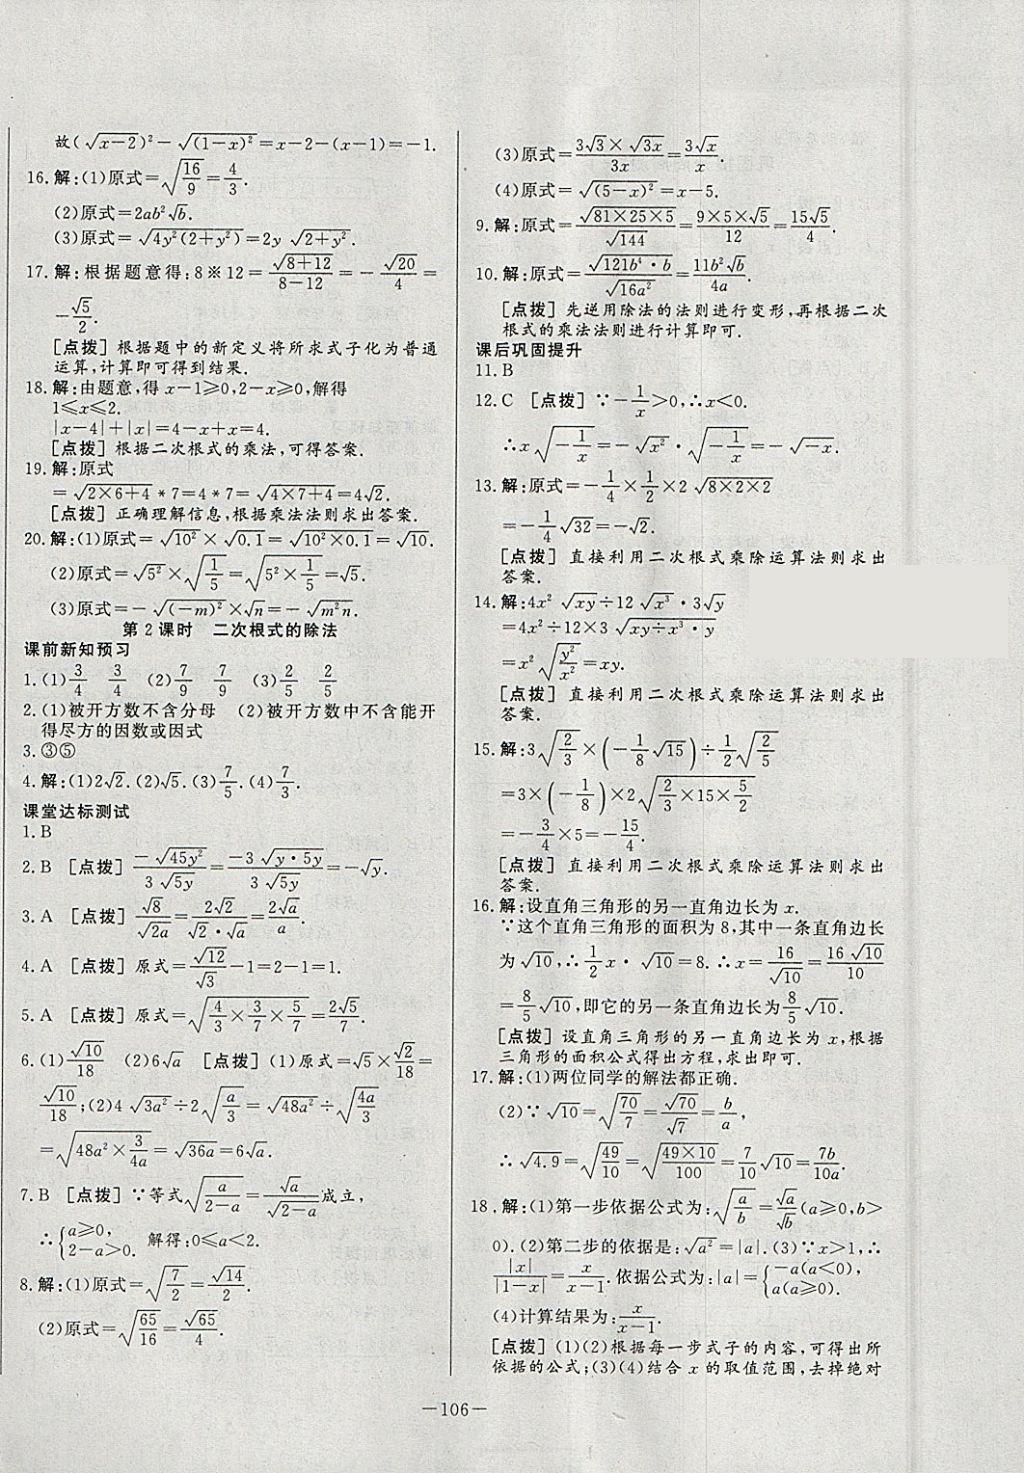 故(√(x-2))²-√((1-x)²)=x-2-(x-1)=-1.
16.解:(1)原式=√(16/9)=4/3.
(2)原式=2ab²√b.
(3)原式=√(4y²(2+y²))=2y √(2+y²).
17.解:根据题意得:8※12=√(8+12)/(8-12)=-√20/4=
-√5/2.
[点拨] 根据题中的新定义将所求式子化为普通
运算,计算即可得到结果.
18.解:由题意,得 x-1≥0,2-x≥0,解得
1≤x≤2.
|x-4|+|x|=4-x+x=4.
[点拨] 根据二次根式的乘法,可得答案.
19.解:原式
=√(2×6+4)*7=4*7=√(4×7+4)=4√2.
[点拨] 正确理解信息,根据乘法法则求出答案.
20.解:(1)原式=√(10²)×√0.1=√(10²×0.1)=√10.
(2)原式=√(5²)×√(1/5)=√(5²×1/5)=√5.
(3)原式=-√((-m)²)×√n=-√(m²n).
第2课时 二次根式的除法
课前新知预习
1.(1)3/4 3/4 (2)7/9 7/9 (3)2/5 2/5
2.(1)被开方数不含分母 (2)被开方数中不含能开
得尽方的因数或因式
3.③⑤
4.解:(1)2√2.(2)√5.(3)7/5.(4)7/3.
课堂达标测试
1.B
2.B [点拨] -√(45y²)/(3√(5y))=-3√(y·5y)/(3√(5y))=-√y.
3.A [点拨] √8/√(2a)=2√2/(√2·√a)=2√a/a.
4.A [点拨] 原式=√12/√3-1=2-1=1.
5.A [点拨] 原式=√(4/3×3/7×5/7)=2√5/7.
6.(1)√10/18 (2)6√a [点拨] (1)原式=√5×√2/18=
√10/18;(2)4√(3a²)÷2√(a/3)=√(48a²)÷√(4a/3)
=√(48a²×3/(4a))=√(36a)=6√a.
7.B [点拨] ∵等式√(a/(2-a))=√a/√(2-a)成立,
∴{a≥0, 2-a>0. 解得:0≤a<2.
8.解:(1)原式=√(7/2)=√14/2.
(2)原式=√(65/16)=√65/4.
(3)原式=(3√3×√(3x))/(3x)=3√x/x.
(4)原式=√((5-x)²)=x-5.
9.解:原式=√(81×25×5)/√144=(9×5×√5)/12=15√5/4.
10.解:原式=√(121b⁴·b)/√(16a²)=11b²√b/(4a).
[点拨] 先逆用除法的法则进行变形,再根据二次
根式的乘法法则进行计算即可.
课后巩固提升
11.B
12.C [点拨] ∵-1/x>0,∴x<0.
∴x√(-1/x)=-√(x²)·√(-1/x)=-√(-x).
13.解:原式=-1/4×1/2×2√(8×2×2)
=-1/4√32=-√2.
[点拨] 直接利用二次根式乘除运算法则求出
答案.
14.解:4x²√(xy)÷12√(x³)·3√y
=4x²÷12×3√(xy÷x³·y)
=x²√(y²/x²)=xy.
[点拨] 直接利用二次根式乘除运算法则求出
答案.
15.解:3√(2/3)×(-1/8√15)÷1/2√(2/5)
=3×(-1/8)×2√(2/3×15×5/2)
=-3/4×5=-15/4.
[点拨] 直接利用二次根式乘除运算法则求出
答案.
16.解:设直角三角形的另一直角边长为 x.
∵这个直角三角形的面积为8,其中一条直角边长
为√10,∴1/2x·√10=8.∴x=16/√10=16√10/10
=8/5√10,即它的另一条直角边长为8/5√10.
[点拨] 设直角三角形的另一直角边长为 x,根据
三角形的面积公式得出方程,求出即可.
17.解:(1)两位同学的解法都正确.
(2)∵√10=√(70/7)=√70/√7=b/a,
∴√4.9=√(49/10)=√(49×10/100)=7/10√10=7b/10a.
18.解:(1)第一步依据公式为:√(a/b)=√a/√b(a≥0,b>
0).(2)第二步的依据是:√(a²)=|a|.(3)∵x>1,∴
|x|/|1-x|=x/(x-1).依据公式为:|a|={-a(a<0), a(a≥0).
(4)计算结果为:x/(x-1).
[点拨] (1)(2)根据每一步式子的内容,可得出所
依据的公式;(3)(4)结合 x 的取值范围,去掉绝对
—106—